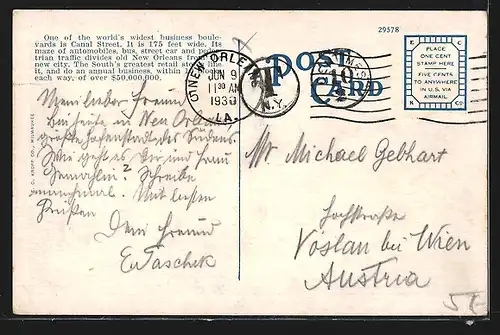 One of the world's widest business boule-
vards is Canal Street. It is 175 feet wide. Its
maze of automobiles, bus, street car and pedes-
trian traffic divides old New Orleans from the
new city. The South's greatest retail stores line
it, and do an annual business, within
each way, of over $50,000,000.
29578
POST
CARD
PLACE
ONE CENT
STAMP HERE
FIVE CENTS
TO ANYWHERE
IN U.S. VIA
AIRMAIL
E C
K CO
NEW ORLEANS
JUN 9
11 30 AM
1930
LA.
T
N.Y.
10
E. C. KROPP CO., MILWAUKEE
Mein lieber Freund
Bin heute in New Orleans
größte Hafenstadt des Südens.
Wie geht es Dir und Frau
Gemahlin? Schreibe
manchmal. Mit besten
Grüßen
Dein Freund
E. Taschek
Mr Michael Gebhart
Hochstraße
Vöslau bei Wien
Austria